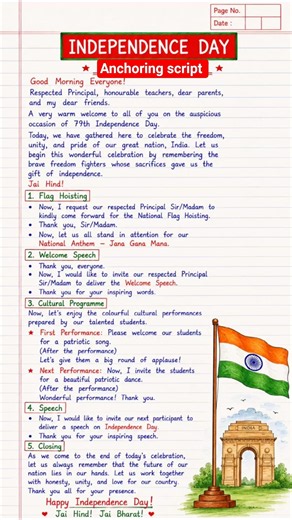 Page No.
Date :
INDEPENDENCE DAY
★ Anchoring script ★
Good Morning Everyone!
Respected Principal, honourable teachers, dear parents,
and my dear friends.
A very warm welcome to all of you on the auspicious
occasion of 79th Independence Day.
Today, we have gathered here to celebrate the freedom,
unity, and pride of our great nation, India. Let us
begin this wonderful celebration by remembering the
brave freedom fighters whose sacrifices gave us the
gift of independence.
Jai Hind!
1. Flag Hoisting
• Now, I request our respected Principal Sir/Madam to
kindly come forward for the National Flag Hoisting.
• Thank you, Sir/Madam.
• Now, let us all stand in attention for our
National Anthem – Jana Gana Mana.
2. Welcome Speech
• Thank you, everyone.
• Now, I would like to invite our respected Principal
Sir/Madam to deliver the Welcome Speech.
• Thank you for your inspiring words.
3. Cultural Programme
Now, let's enjoy the colourful cultural performances
prepared by our talented students.
★ First Performance: Please welcome our students
for a patriotic song.
(After the performance)
Let's give them a big round of applause!
★ Next Performance: Now, I invite the students
for a beautiful patriotic dance.
(After the performance)
Wonderful performance! Thank you.
4. Speech
• Now, I would like to invite our next participant to
deliver a speech on Independence Day.
• Thank you for your inspiring speech.
5. Closing
As we come to the end of today's celebration,
let us always remember that the future of our
nation lies in our hands. Let us work together
with honesty, unity, and love for our country.
Thank you all for your presence.
Happy Independence Day!
♥ Jai Hind! Jai Bharat! ♥
INDIA